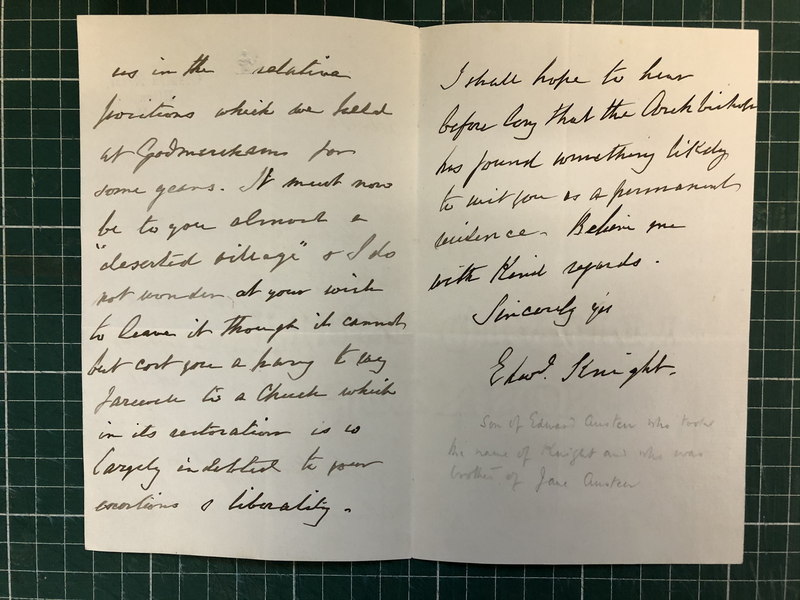 us in the relative
positions which we held
at Godmersham for
some years. It must now
be to you almost a
"deserted village" & I do
not wonder at your wish
to leave it though it cannot
but cost you a pang to say
farewell to a Church which
in its restoration is so
largely indebted to your
exertions & liberality.
I shall hope to hear
before long that the Archbishop
has found something likely
to suit you as a permanent
residence. Believe me
with kind regards.
Sincerely yrs
Edwd. Knight.
Son of Edward Austen who took
the name of Knight and who was
brother of Jane Austen